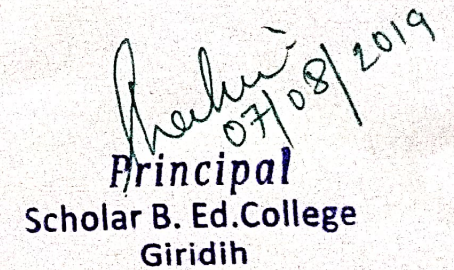 07/08/2019
Principal
Scholar B. Ed.College
Giridih